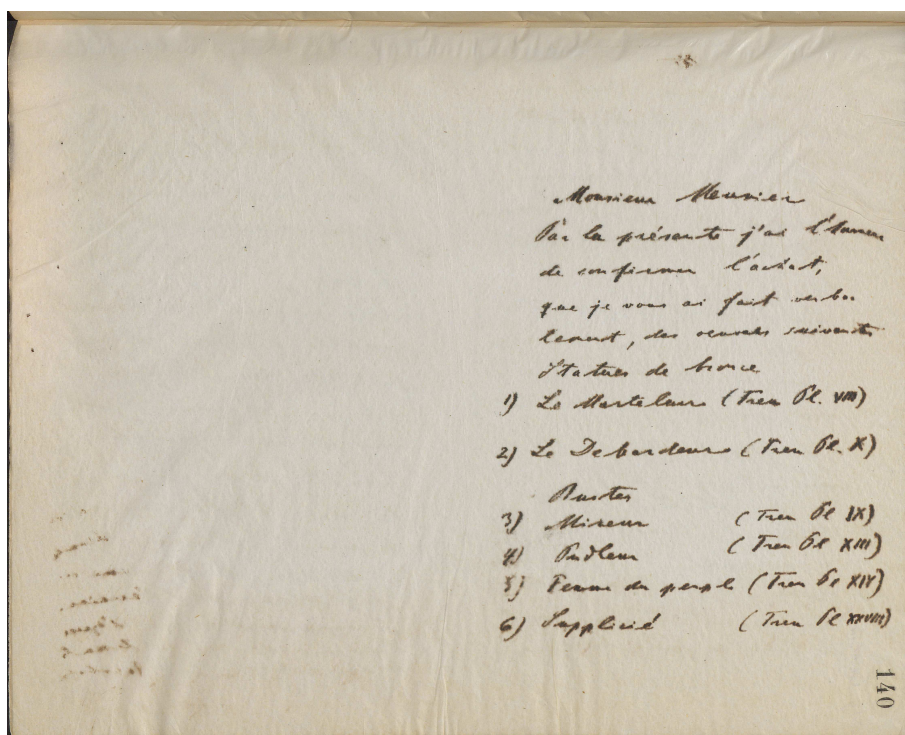 Monsieur Meunier
Par la présente j'ai l'honneur
de confirmer l'achat,
que je vous ai fait verba
lement, des oeuvres suivants
Statues de bronce
1) Le Marteleur (Treu Pl. VIII)
2) Le Debardeur (Treu Pl. X)
Bustes
3) Mineur (Treu Pl IX)
4) Pudleur (Treu Pl XIII)
5) Femme du peuple (Treu Pl XIV)
6) Supplicié (Treu Pl XXVIII)
140